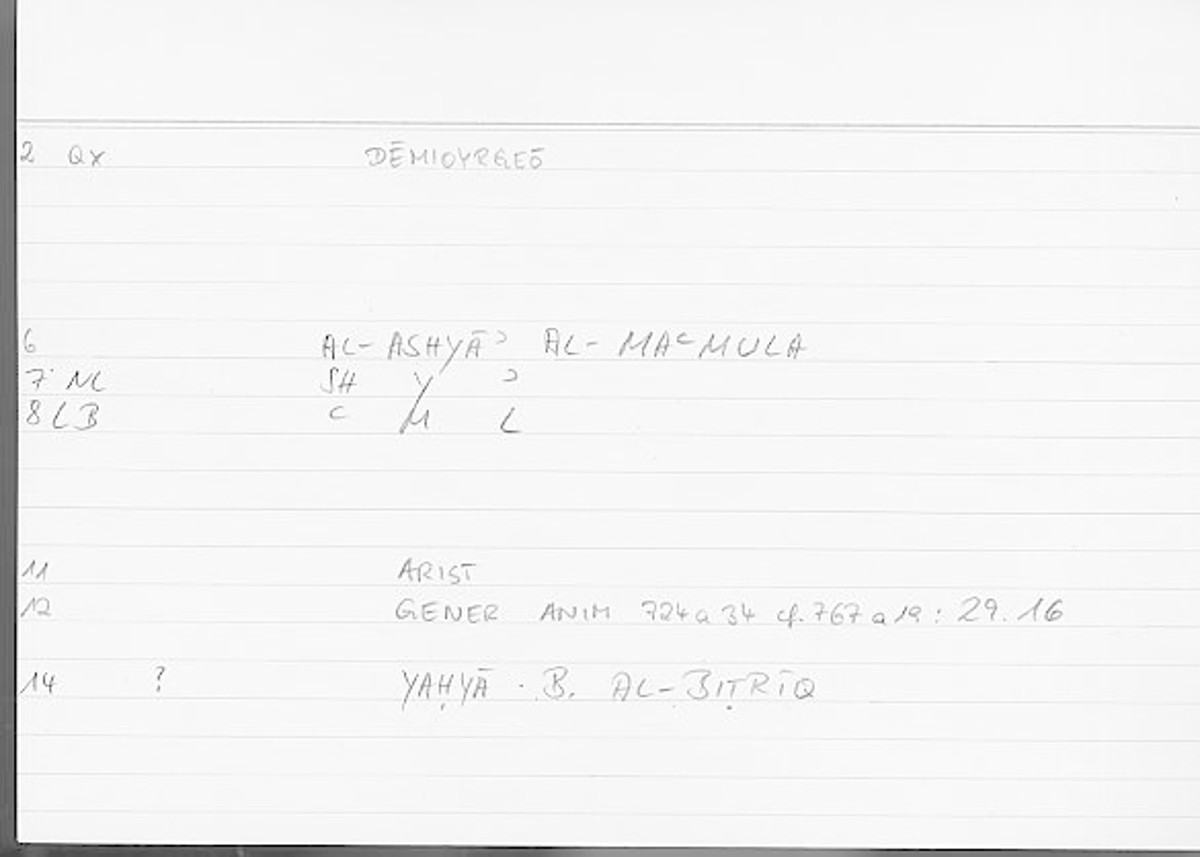 2 QX DĒMIOYRGEŌ
6 AL-ASHYĀʾ AL-MAʿMULA
7 NL SH Y ʾ
8 LB ʿ M L
11 ARIST
12 GENER ANIM 724a 34 cf. 767a19: 29.16
14 ? YAḤYĀ . B. AL-BIṬRĪQ